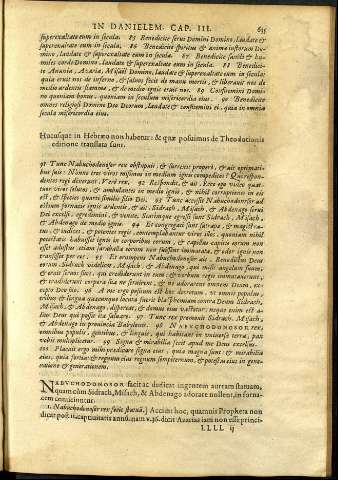 IN DANIELEM. CAP. III. 635
superexaltate eum in secula. 85 Benedicite serui Domini Domino, laudate &
superexaltate eum in secula. 86 Benedicite spiritus & animæ iustorum Do-
mino, laudate & superexaltate eum in secula. 87 Benedicite sancti & hu-
miles corde Domino, laudate & superexaltate eum in secula. 88 Benedici-
te Anania, Azaria, Misael Domino, laudate & superexaltate eum in secula:
quia eruit nos de inferno, & saluos fecit de manu mortis, & liberauit nos de
medio ardentis flammæ, & de medio ignis eruit nos. 89 Confitemini Domi-
no quoniam bonus, quoniam in seculum misericordia eius. 90 Benedicite
omnes religiosi Domino Deo Deorum, laudate & confitemini ei, quia in omnia
secula misericordia eius.
Hucusque in Hebræo non habetur: & quæ posuimus de Theodotionis
editione translata sunt.
91 Tunc Nabuchodonosor rex obstupuit, & surrexit properè, & ait optimati-
bus suis: Nonne tres viros misimus in medium ignis compeditos? Qui respon-
dentes regi dixerunt: Verè rex. 92 Respondit, & ait. Ecce ego video quat-
tuor viros solutos, & ambulantes in medio ignis, & nihil corruptionis in eis
est, & species quarti similis filio Dei. 93 Tunc accessit Nabuchodonosor ad
ostium fornacis ignis ardentis, & ait, Sidrach, Misach, & Abdenago serui
Dei excelsi, egredimini, & venite. Statimque egressi sunt Sidrach, Misach,
& Abdenago de medio ignis. 94 Et congregati sunt satrapæ, & magistra-
tus, & iudices, & potentes regis, contemplabantur viros illos, quoniam nihil
potestatis habuisset ignis in corporibus eorum, & capillus capitis eorum non
esset adustus, & sarabala eorum non fuissent immutata, & odor ignis non
transisset per eos. 95 Et erumpens Nabuchodonosor ait. Benedictus Deus
eorum, Sidrach videlicet, Misach, & Abdenago, qui misit angelum suum,
& eruit seruos suos, qui crediderunt in eum: & verbum regis immutauerunt,
& tradiderunt corpora sua ne seruirent, & ne adorarent omnem Deum, ex-
cepto Deo suo. 96 A me ergo positum est hoc decretum, vt omnis populus,
tribus & lingua quæcunque locuta fuerit blasphemiam contra Deum Sidrach,
Misach, & Abdenago, dispereat, & domus eius vastetur: neque enim est a-
lius Deus qui possit ita saluare. 97 Tunc rex promouit Sidrach, Misach,
& Abdenago in prouincia Babylonis. 98 NABVCHODONOSOR rex,
omnibus populis, gentibus, & linguis, qui habitant in vniuersa terra, pax
vobis multiplicetur. 99 Signa & mirabilia fecit apud me Deus excelsus.
100 Placuit ergo mihi prædicare signa eius, quia magna sunt: & mirabilia
eius, quia fortia: & regnum eius regnum sempiternum, & potestas eius in gene-
ratione & generationem.
NABVCHODONOSOR facit ac dedicat ingentem auream statuam,
quam cùm Sidrach, Misach, & Abdenago adorare nollent, in forna-
cem conijciuntur.
1. Nabuchodonosor rex fecit statuã.] Accidit hoc, quamuis Propheta non
LLLL ij